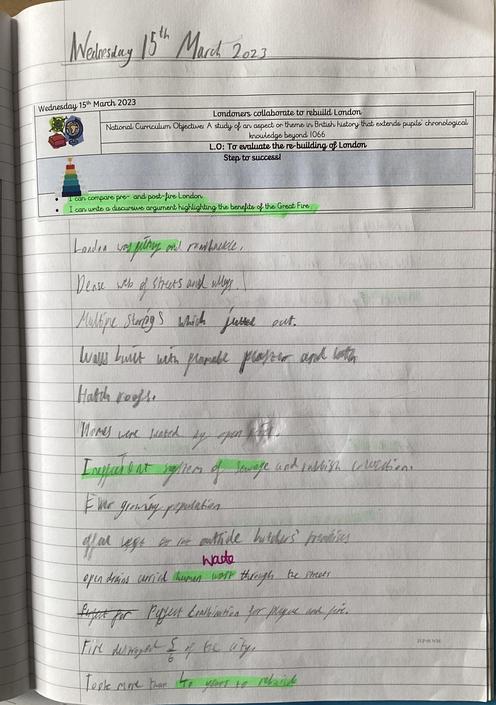 Wednesday 15th March 2023
Wednesday 15th March 2023
Londoners collaborate to rebuild London
National Curriculum Objective: A study of an aspect or theme in British history that extends pupils' chronological
knowledge beyond 1066
L.O: To evaluate the re-building of London
Step to success!
I can compare pre- and post-fire London
I can write a discursive argument highlighting the benefits of the Great Fire
London was filthy and ramshackle.
Dense web of streets and alleys.
Multiple which out.
Walls built with and
roofs.
Homes were heated by open
system of sewage and rubbish
Ever growing population
outside butchers'
Waste
open drains carried human through the streets
Perfect combination for plague and fire.
Fire destroyed 5/6 of the city.
Took more than years to